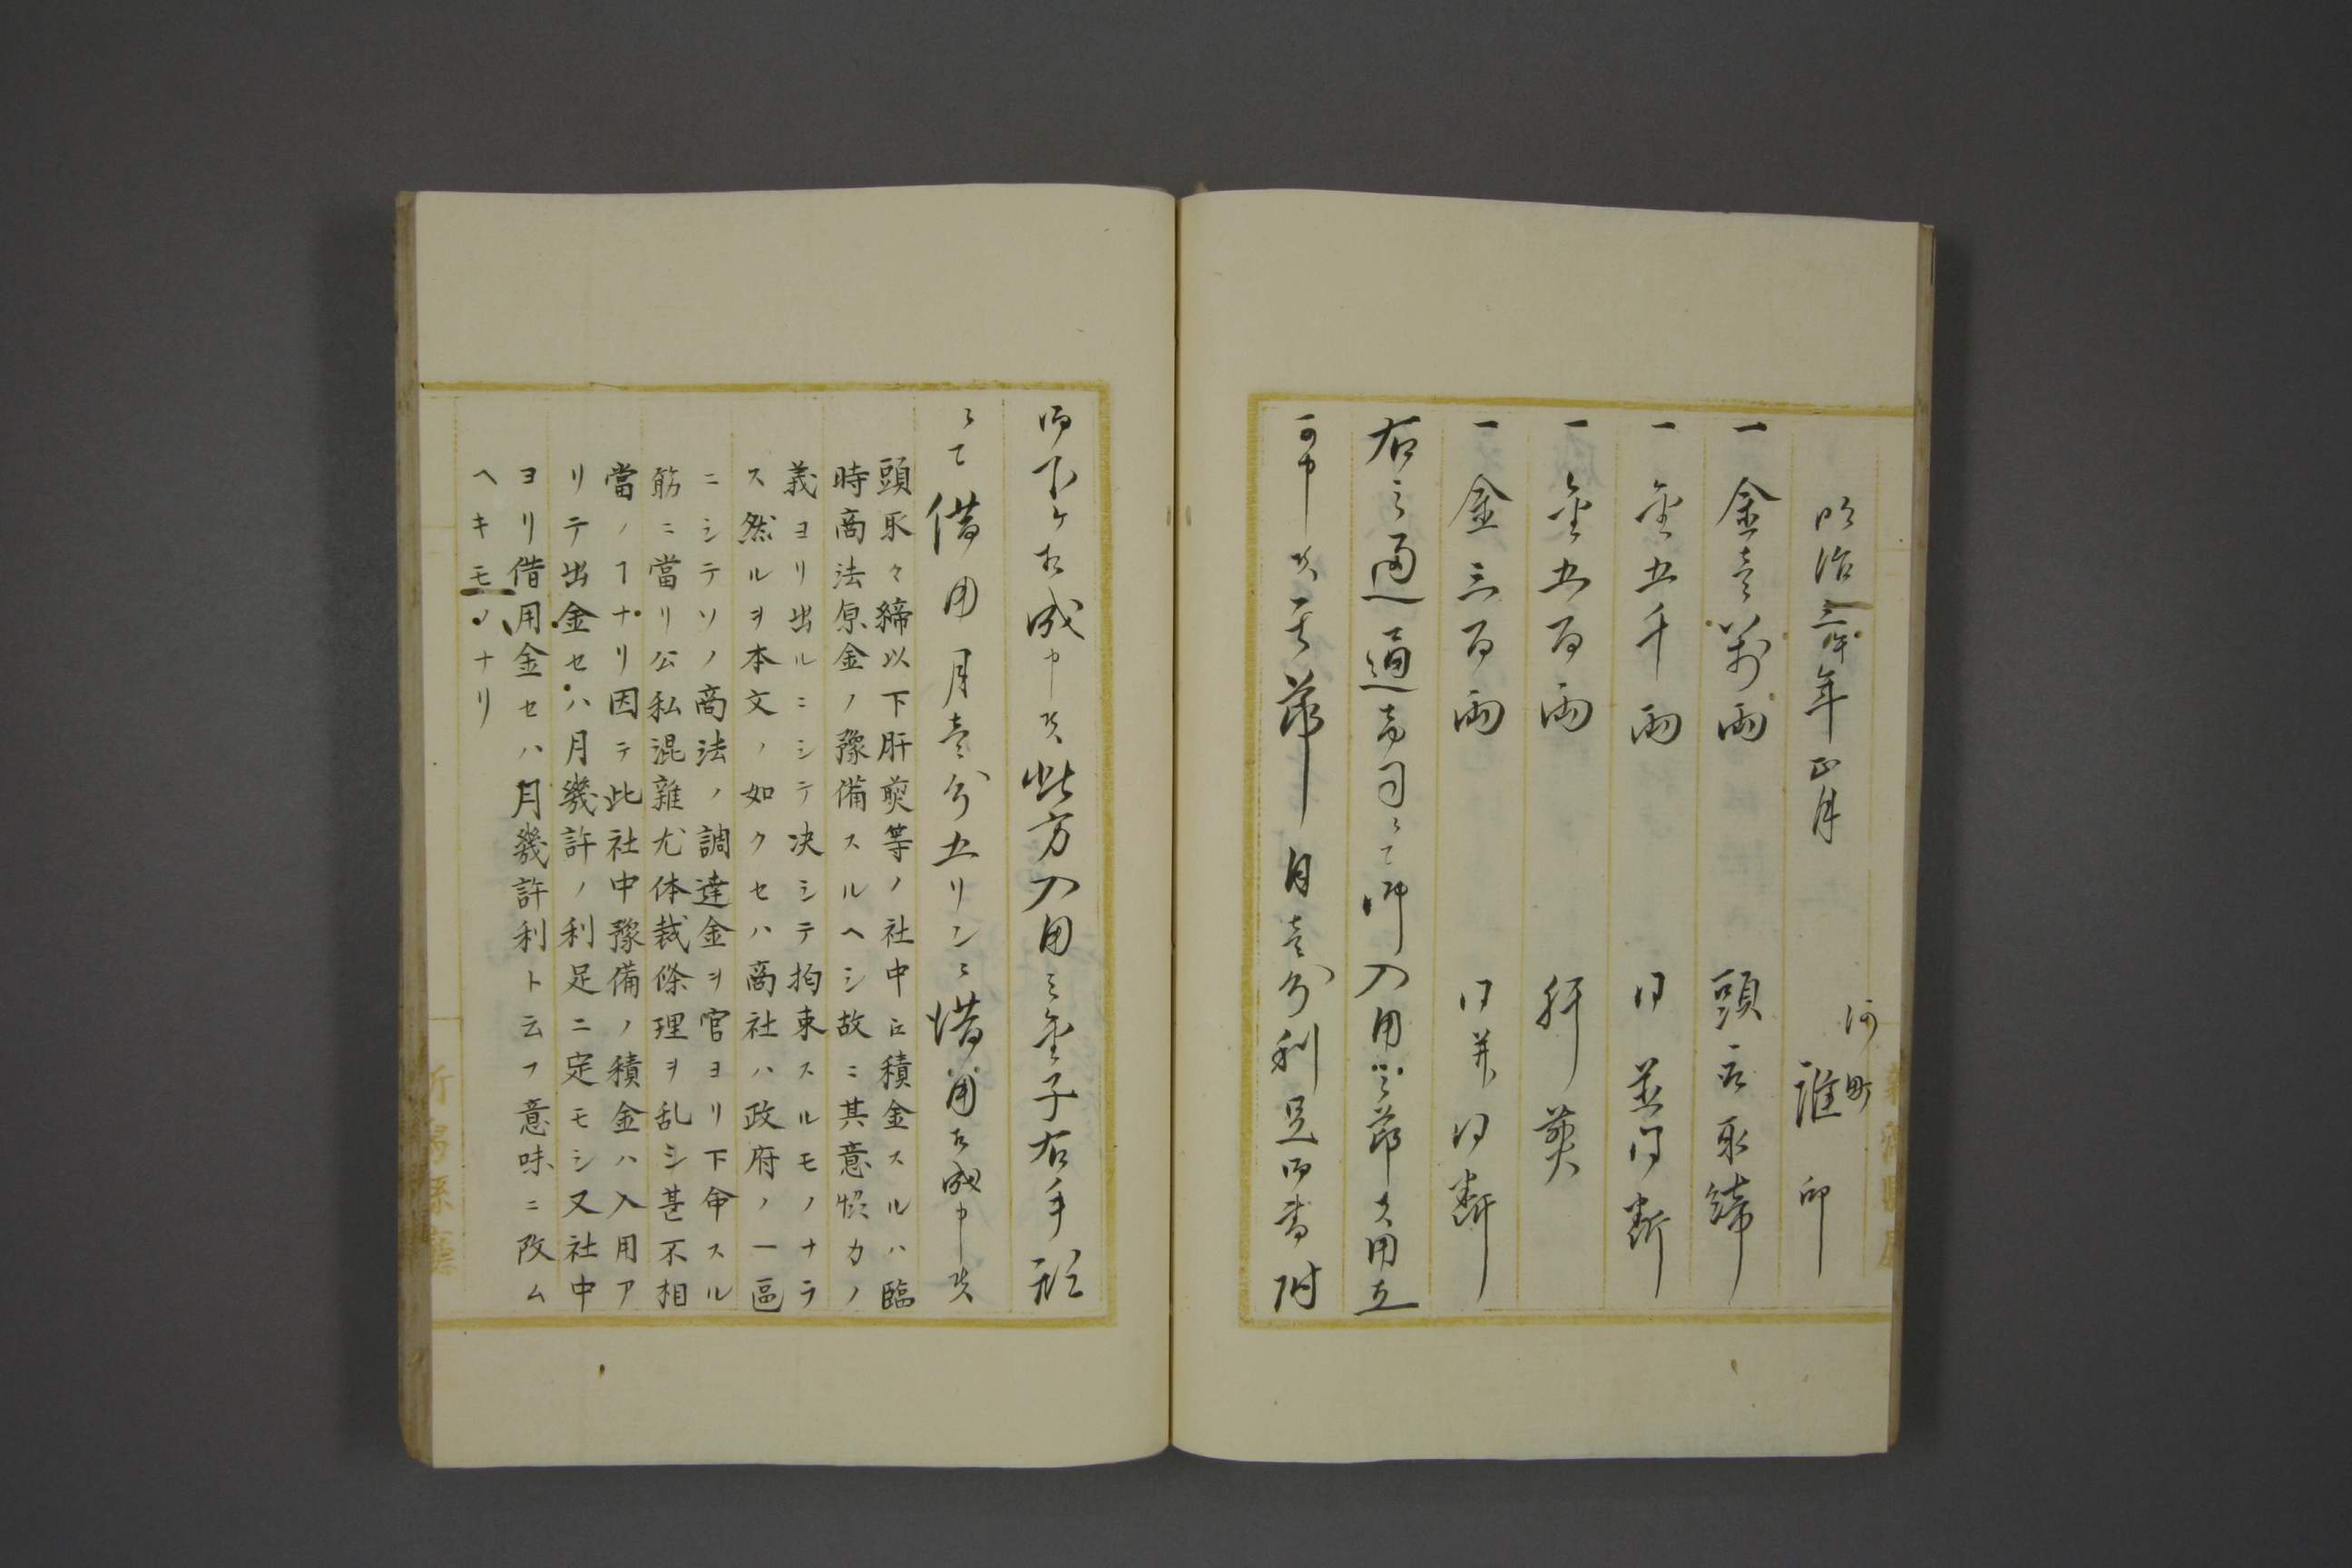 明治三年年正月
何町
誰印
一金壱萬両 頭取取締
一金五千両 同並同断
一金五百両 肝煎
一金三百両 同並同断
右之通商司ニて御入用之節
可申其節月壱分利足御書附
御下ケ相成申候此方入用之金子右手形
ニて借用月壱分五リンニ借用相成申候
頭取々締以下肝煎等ノ社中ニ積金スルハ臨
時商法原金ノ豫備スルヘシ故ニ其意カノ
義ヨリ出ルニシテ决シテ拘束スルモノナラ
ス然ルヲ本文ノ如クセハ商社ハ政府ノ一區
ニシテソノ商法ノ調達金ヲ官ヨリ下命スル
筋ニ當リ公私混雑尤体裁條理ヲ乱シ甚不相
當ノヿナリ因テ此社中豫備ノ積金ハ入用ア
リテ出金セハ月幾許ノ利足ニ定モシ又社中
ヨリ借用金セハ月幾許利ト云フ意味ニ改ム
ヘキモノナリ
新潟縣廳